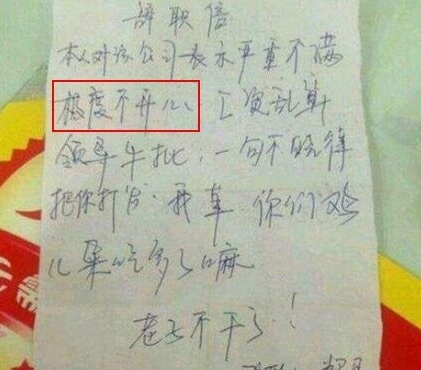 辞职信
本人对该公司表示严重不满
极度不开心 工资乱算
领导牛批，一句不晓得
把你打发．我草 你们鸡
儿吃多了嘛
老子不干了！